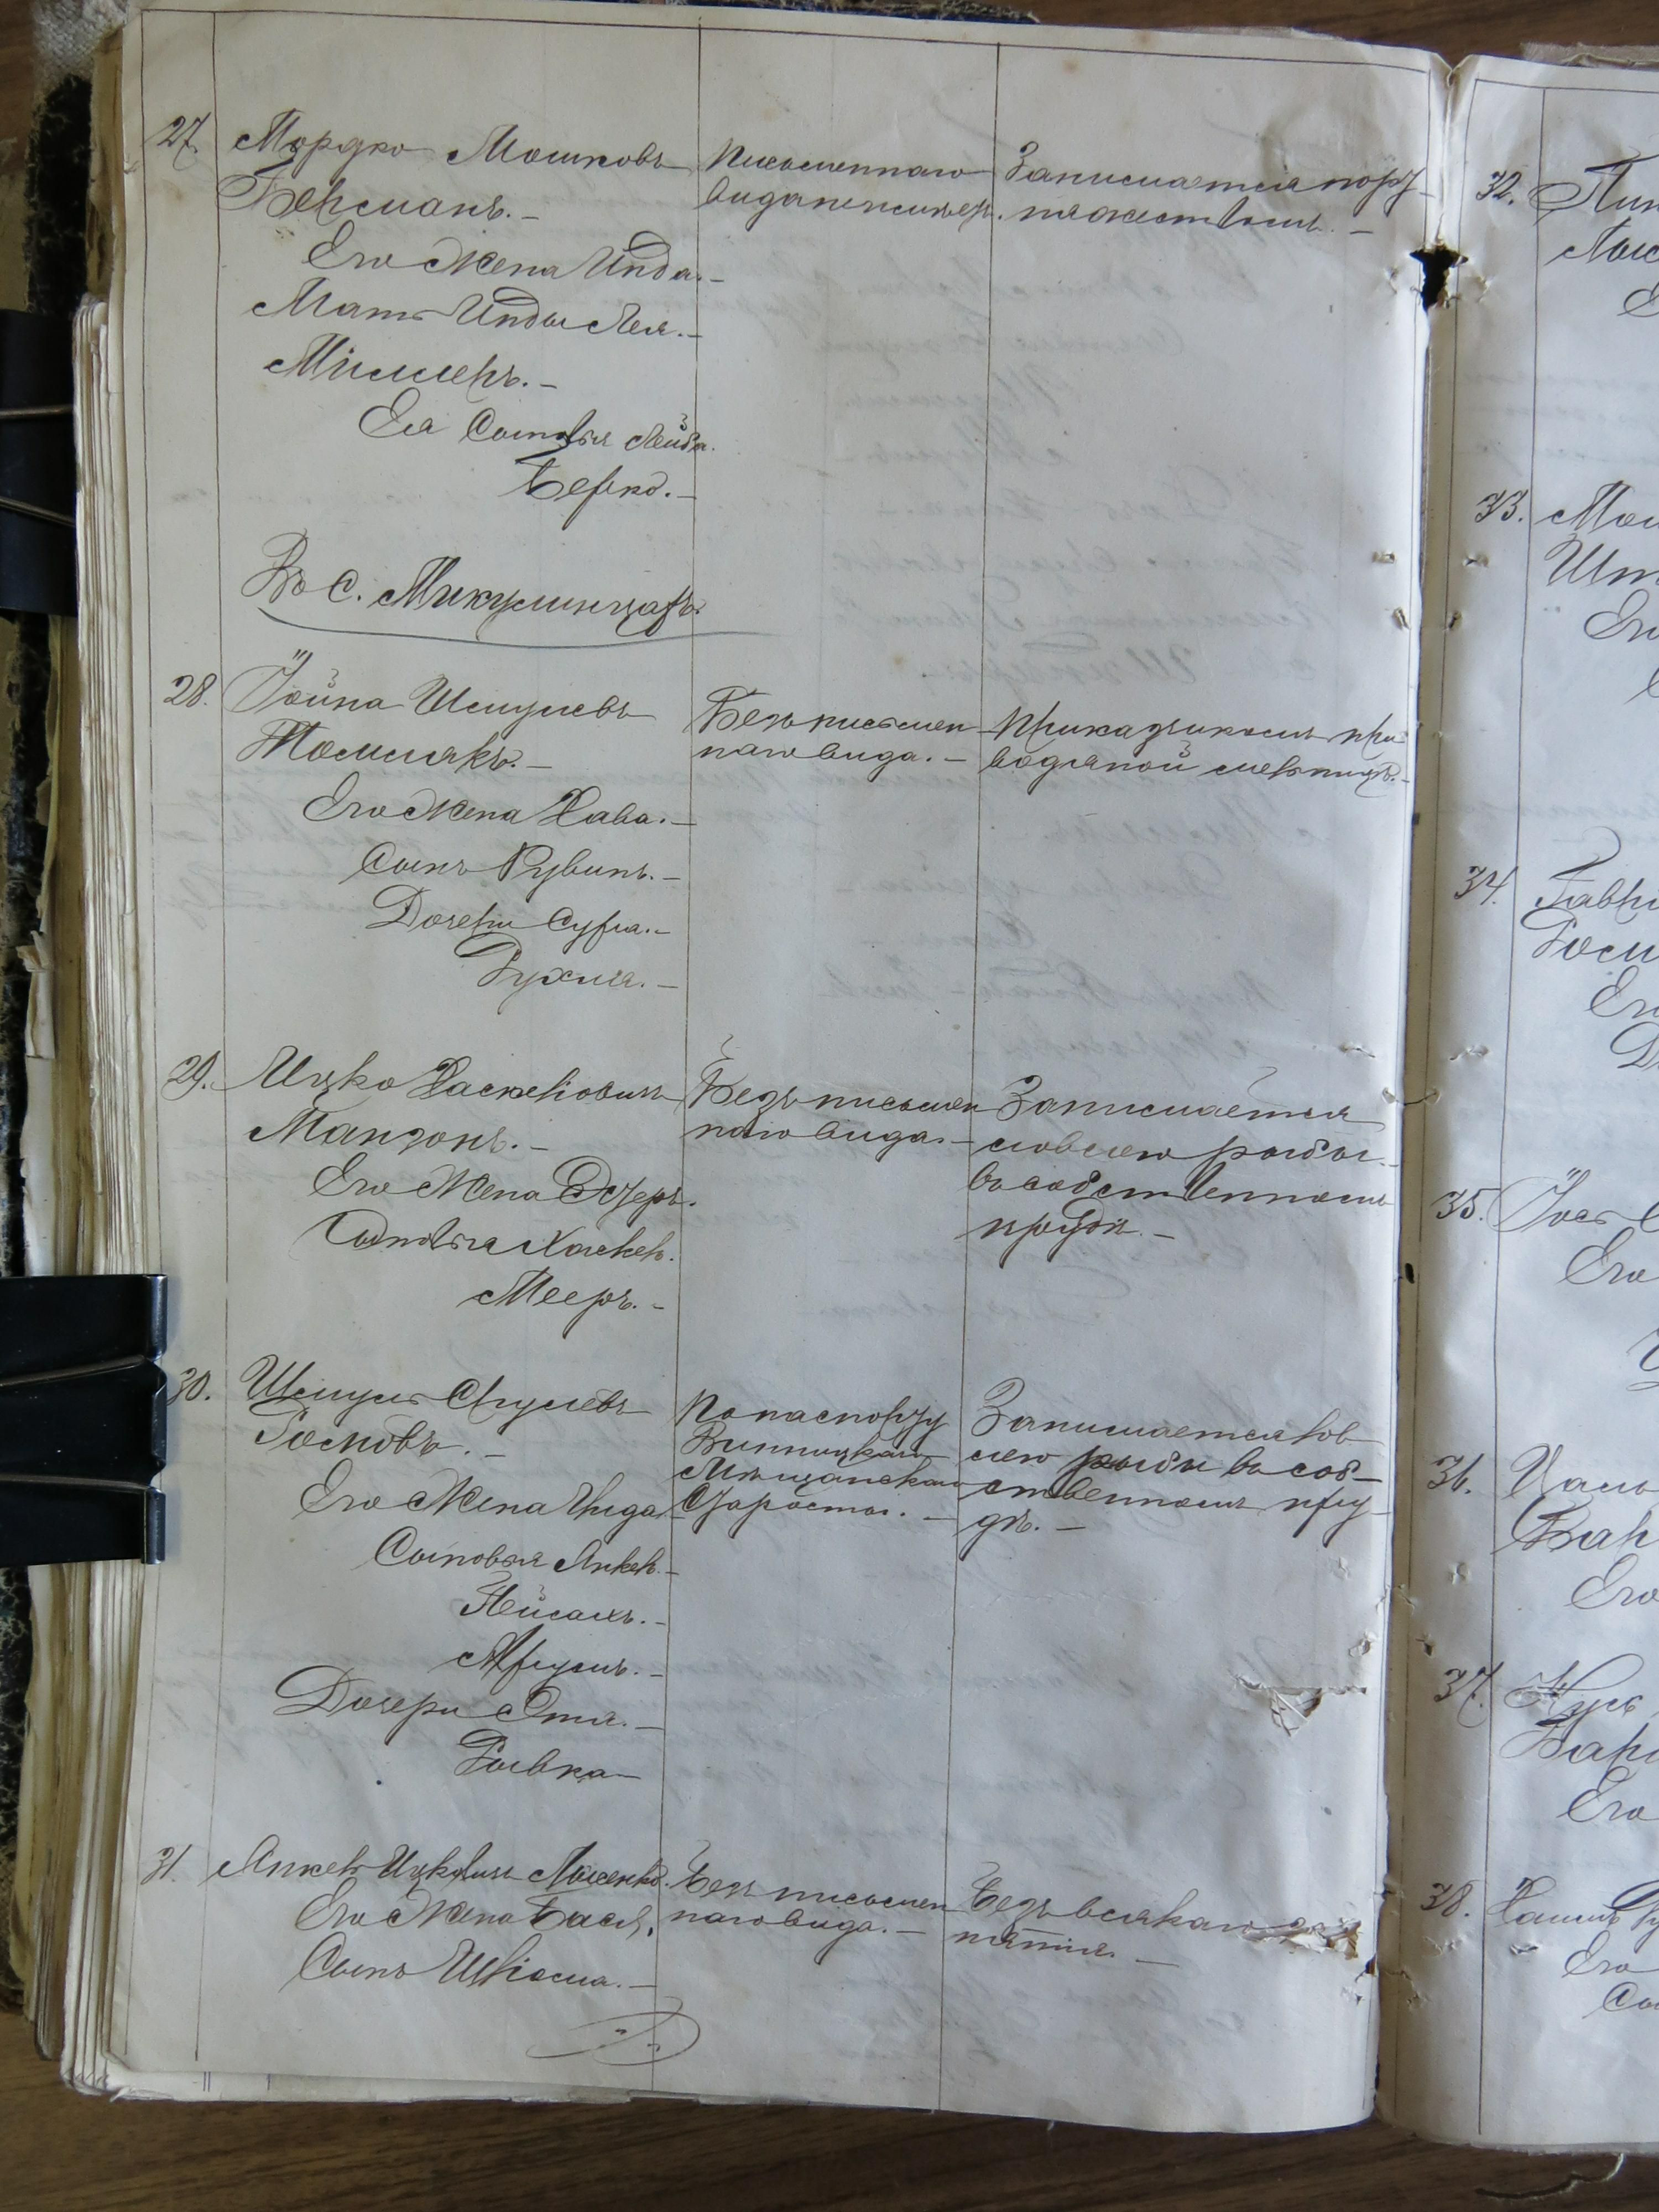 27. Мордко Мошковъ
Берманъ. -
Его жена Инда. -
Мать Инды Лея. -
Миллеръ. -
Ея Сыновья Лейба.
Берко. -
Письменнаго
вида не имѣетъ.
Занимается пору-
Въ С. Микулинцахъ.
28. Іойна Шмулевъ
Его жена Хава. -
Сынъ Рувинъ. -
Дочери Сура. -
Рухля. -
Безъ письмен
наго вида. -
Приказчикомъ при
водяной мельницѣ. -
29. Ицко Хаскелiовичъ
Манзонъ. -
Его жена Эстеръ.
Сыновья Хаскель.
Мееръ. -
Безъ письмен
наго вида. -
Занимается
ловлею рыбы. -
въ собственномъ
прудѣ. -
30. Шмуль Срулевъ
Его жена Чиза
Сыновья Янкель. -
Пейсахъ. -
Мруль. -
Дочери Этя. -
Рывка -
По паспорту
Винницкаго
Мѣщанскаго
Старосты. -
Занимается лов
лею рыбы въ соб-
ственномъ пру-
дѣ. -
31. Янкель Ицковичъ
Его жена Бася,
Сынъ Шлiома. -
Безъ письмен
наго вида. -
Безъ всякаго за
нятiя. -
32.
33.
34.
35.
Его
36.
Его
37.
Его
38.
Его